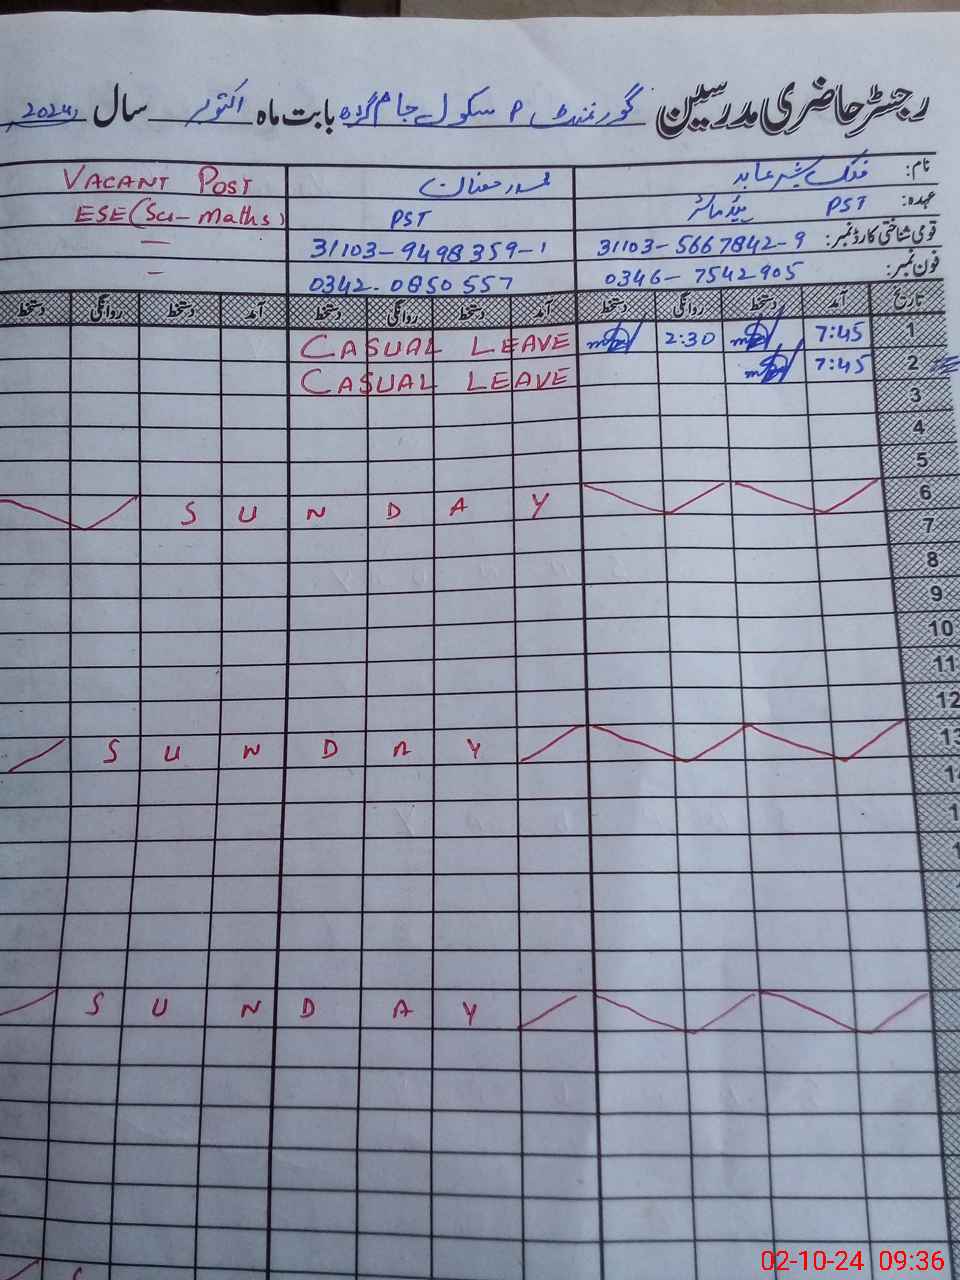 رجسٹر حاضری مدرسین گورنمنٹ P سکول جام بابت ماہ اکتوبر سال 2024ء
نام: فلک شیر عابد
VACANT POST
عہدہ: PST ہیڈ ماسٹر PST ESE (Sci-Maths)
قومی شناختی کارڈ نمبر: 31103-5667842-9 31103-9498359-1 —
فون نمبر: 0346-7542905 0342-0850557 —
تاریخ آمد دستخط روانگی دستخط آمد دستخط روانگی دستخط آمد دستخط روانگی دستخط
1 7:45 2:30 CASUAL LEAVE
2 7:45 CASUAL LEAVE
3
4
5
6 SUNDAY
7
8
9
10
11
12
13 SUNDAY
SUNDAY
02-10-24 09:36